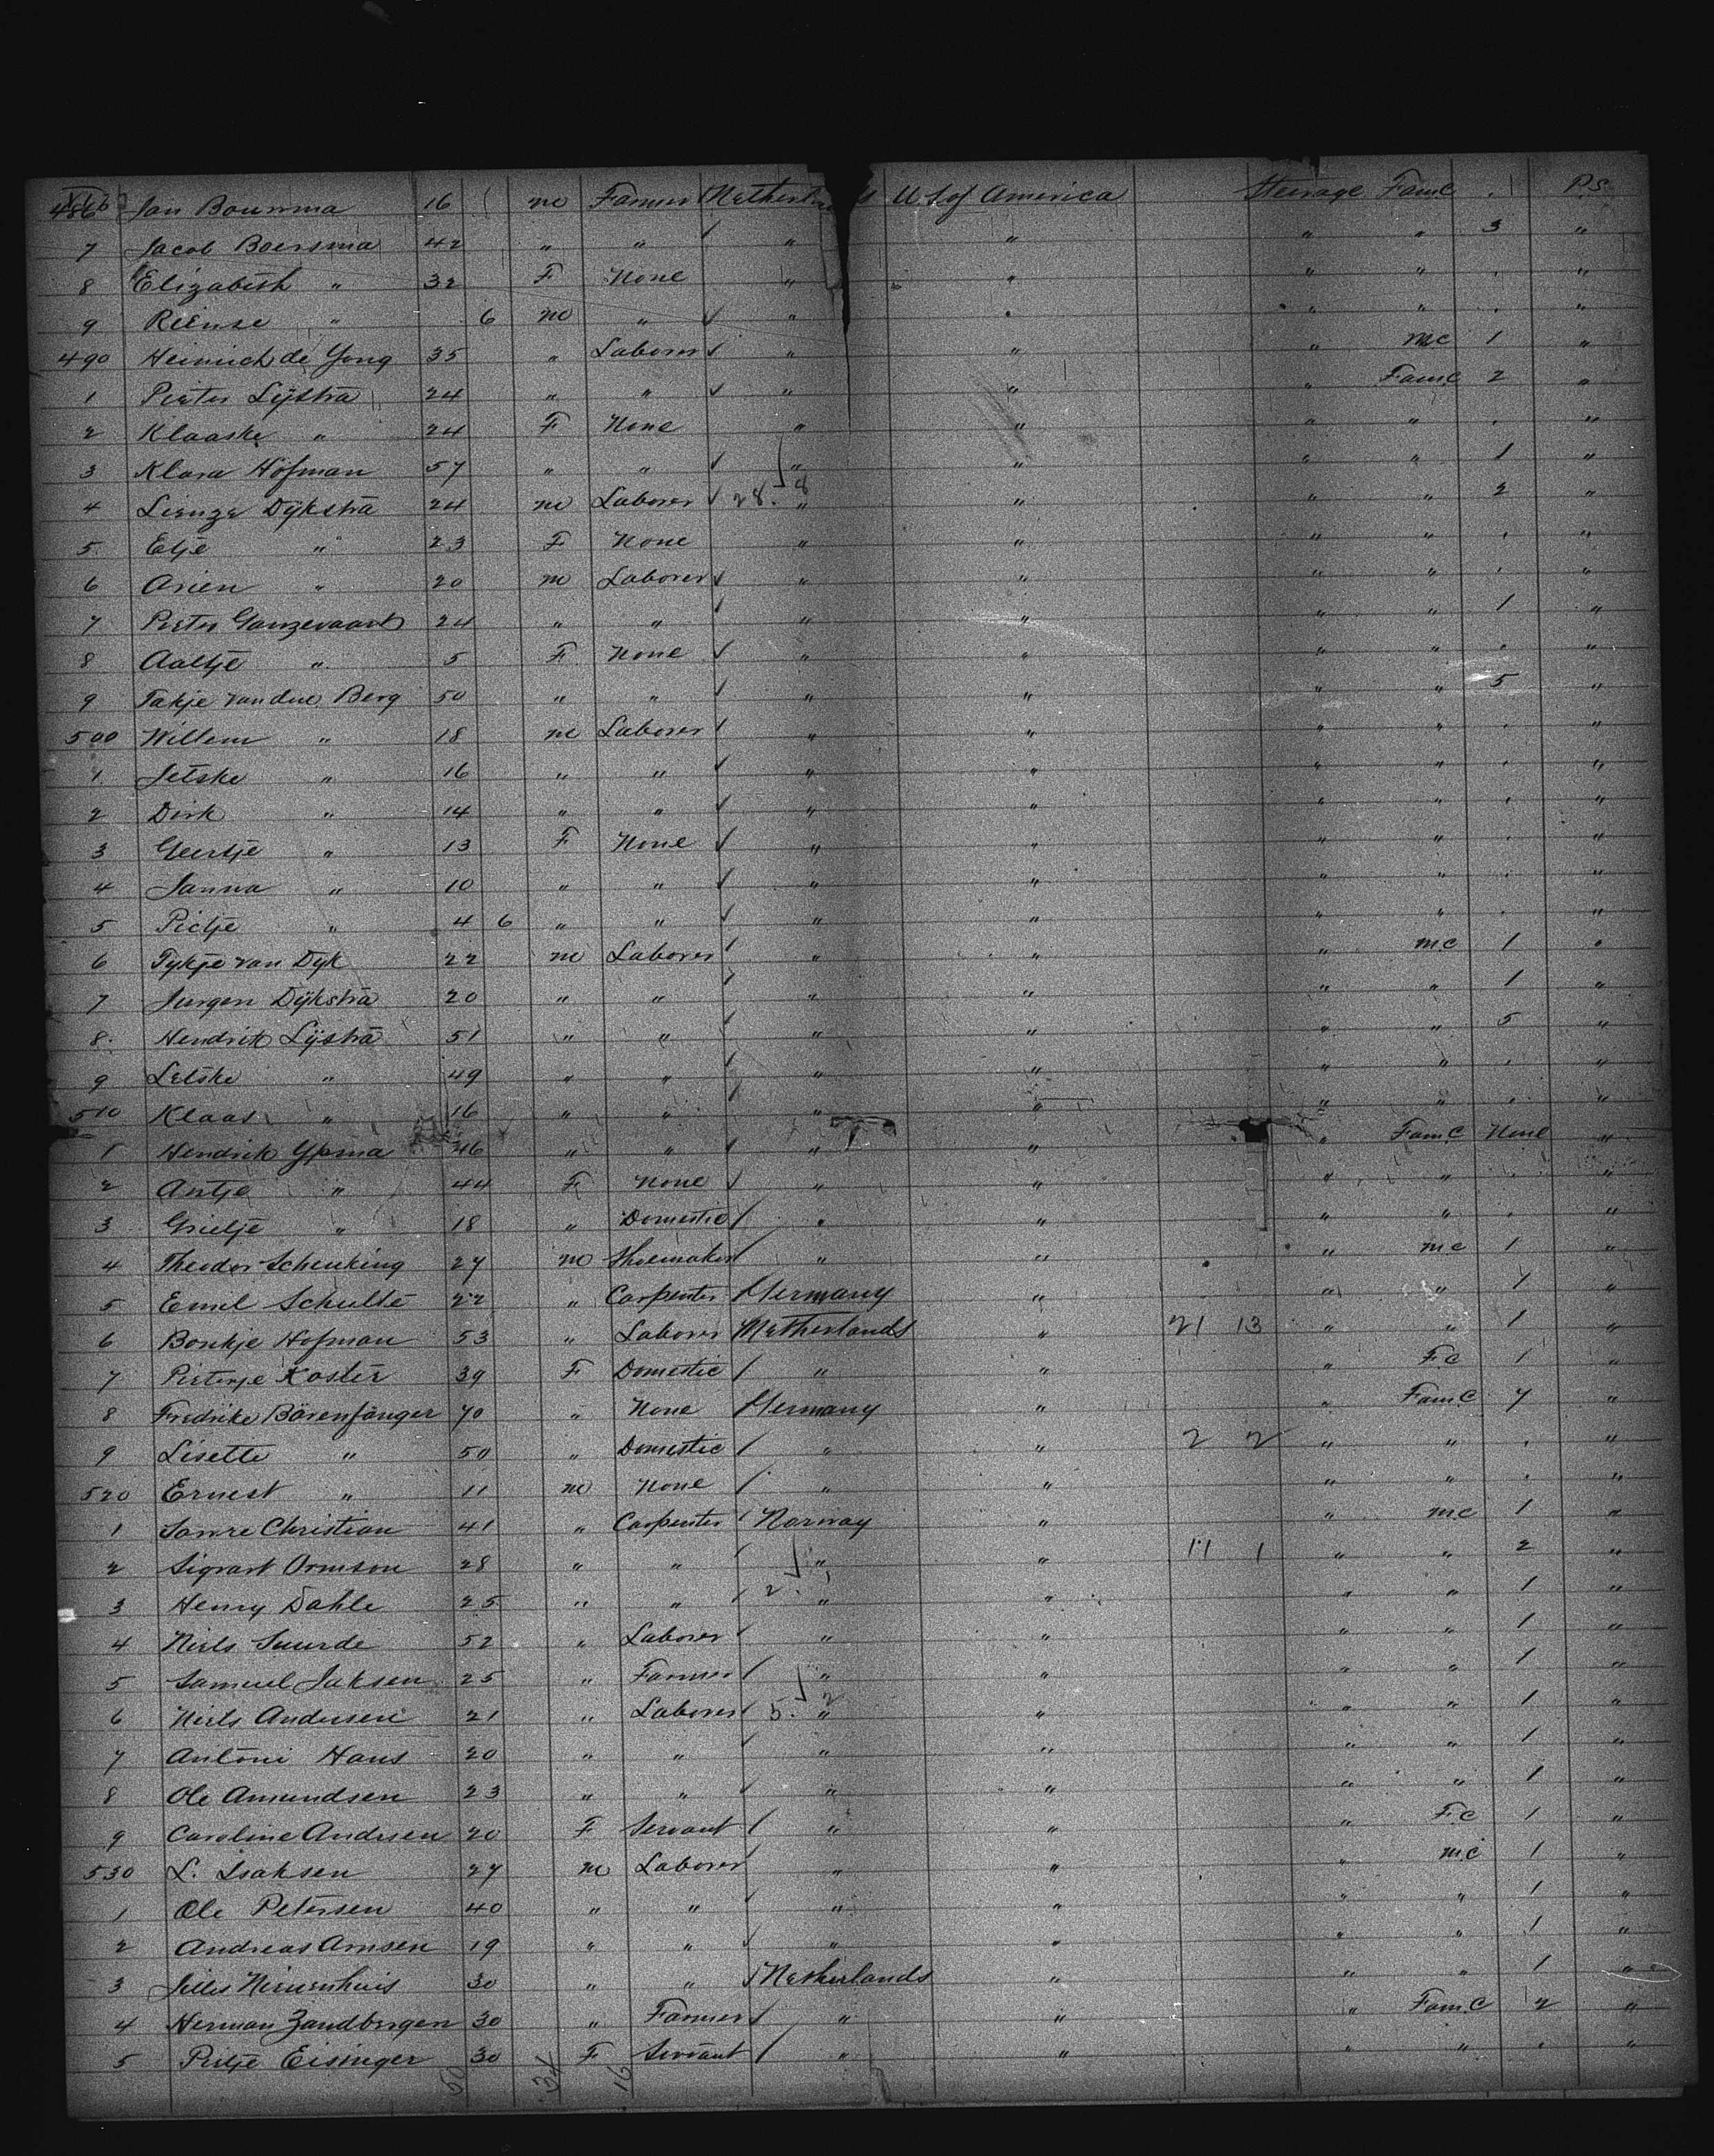 486 Jan Boumma 16 m Farmer Netherlands U.S of America Steerage Fam.C 1 P.S.
7 Jacob Boersma 42 " " " " " " 3 "
8 Elizabeth " 32 F None " " " " . "
9 Riense " 6 m " " " " " . "
490 Heinrich de Yong 35 " Laborer " " " m.c 1 "
1 Pieter Lÿstra 24 " " " " " Fam.C 2 "
2 Klaaske " 24 F None " " " " . "
3 Klara Hofman 57 " " " " " " 1 "
4 Lienze Dÿkstra 24 m Laborer 28. 8 " " " " 2 "
5 Etje " 23 F None " " " " . "
6 Arien " 20 m Laborer " " " " . "
7 Pieter Ganzevaart 24 " " " " " " 1 "
8 Aaltje " 5 F None " " " " . "
9 Takje van den Berg 50 " " " " " " 5 "
500 Willem " 18 m Laborer " " " " . "
1 Jetske " 16 " " " " " " . "
2 Dirk " 14 " " " " " " . "
3 Geertje " 13 F None " " " " . "
4 Janna " 10 " " " " " " . "
5 Pietje " 4 6 " " " " " " . "
6 Tykje van Dyk 22 m Laborer " " " m.c 1 "
7 Jurgen Dÿkstra 20 " " " " " " 1 "
8. Hendrik Lÿstra 51 " " " " " " 5 "
9 Letske " 49 " " " " " " . "
510 Klaas " 16 " " " " " " . "
1 Hendrik Ypma 46 " " " " " Fam.C None "
2 Antje " 44 F None " " " " . "
3 Grietje " 18 " Domestic " " " " . "
4 Theodor Schenking 27 m Shoemaker " " " m.c 1 "
5 Emil Schulte 22 " Carpenter Germany " " " 1 "
6 Bonkje Hofman 53 " Laborer Netherlands " 21 13 " " 1 "
7 Pietinje Koster 39 F Domestic " " " F.C 1 "
8 Fredrike Bärenfänger 70 " None Germany " " Fam.C 7 "
9 Lisette " 50 " Domestic " " 2 2 " " . "
520 Ernest " 11 m None " " " " . "
1 Christian 41 " Carpenter Norway " " m.c 1 "
2 Sigvart Ormson 28 " " " " 11 1 " " 2 "
3 Henry Dahle 25 " " 2. " " " " 1 "
4 Niels 52 " Laborer " " " " 1 "
5 Samuel Jaksen 25 " Farmer " " " " 1 "
6 Niels Andersen 21 " Laborer 5. 2 " " " " 1 "
7 Antoni Hans 20 " " " " " " 1 "
8 Ole Amundsen 23 " " " " " " 1 "
9 Caroline Andersen 20 F Servant " " " F.C 1 "
530 L. Isaksen 27 m Laborer " " " m.c 1 "
1 Ole Petersen 40 " " " " " " 1 "
2 Andreas Arnsen 19 " " " " " " 1 "
3 Jilles Nieuenhuis 30 " " Netherlands " " " 1 "
4 Herman Zandbergen 30 " Farmer " " " Fam.C 2 "
5 Pietje Eisinger 30 F Servant " " " " . "
50 34 16